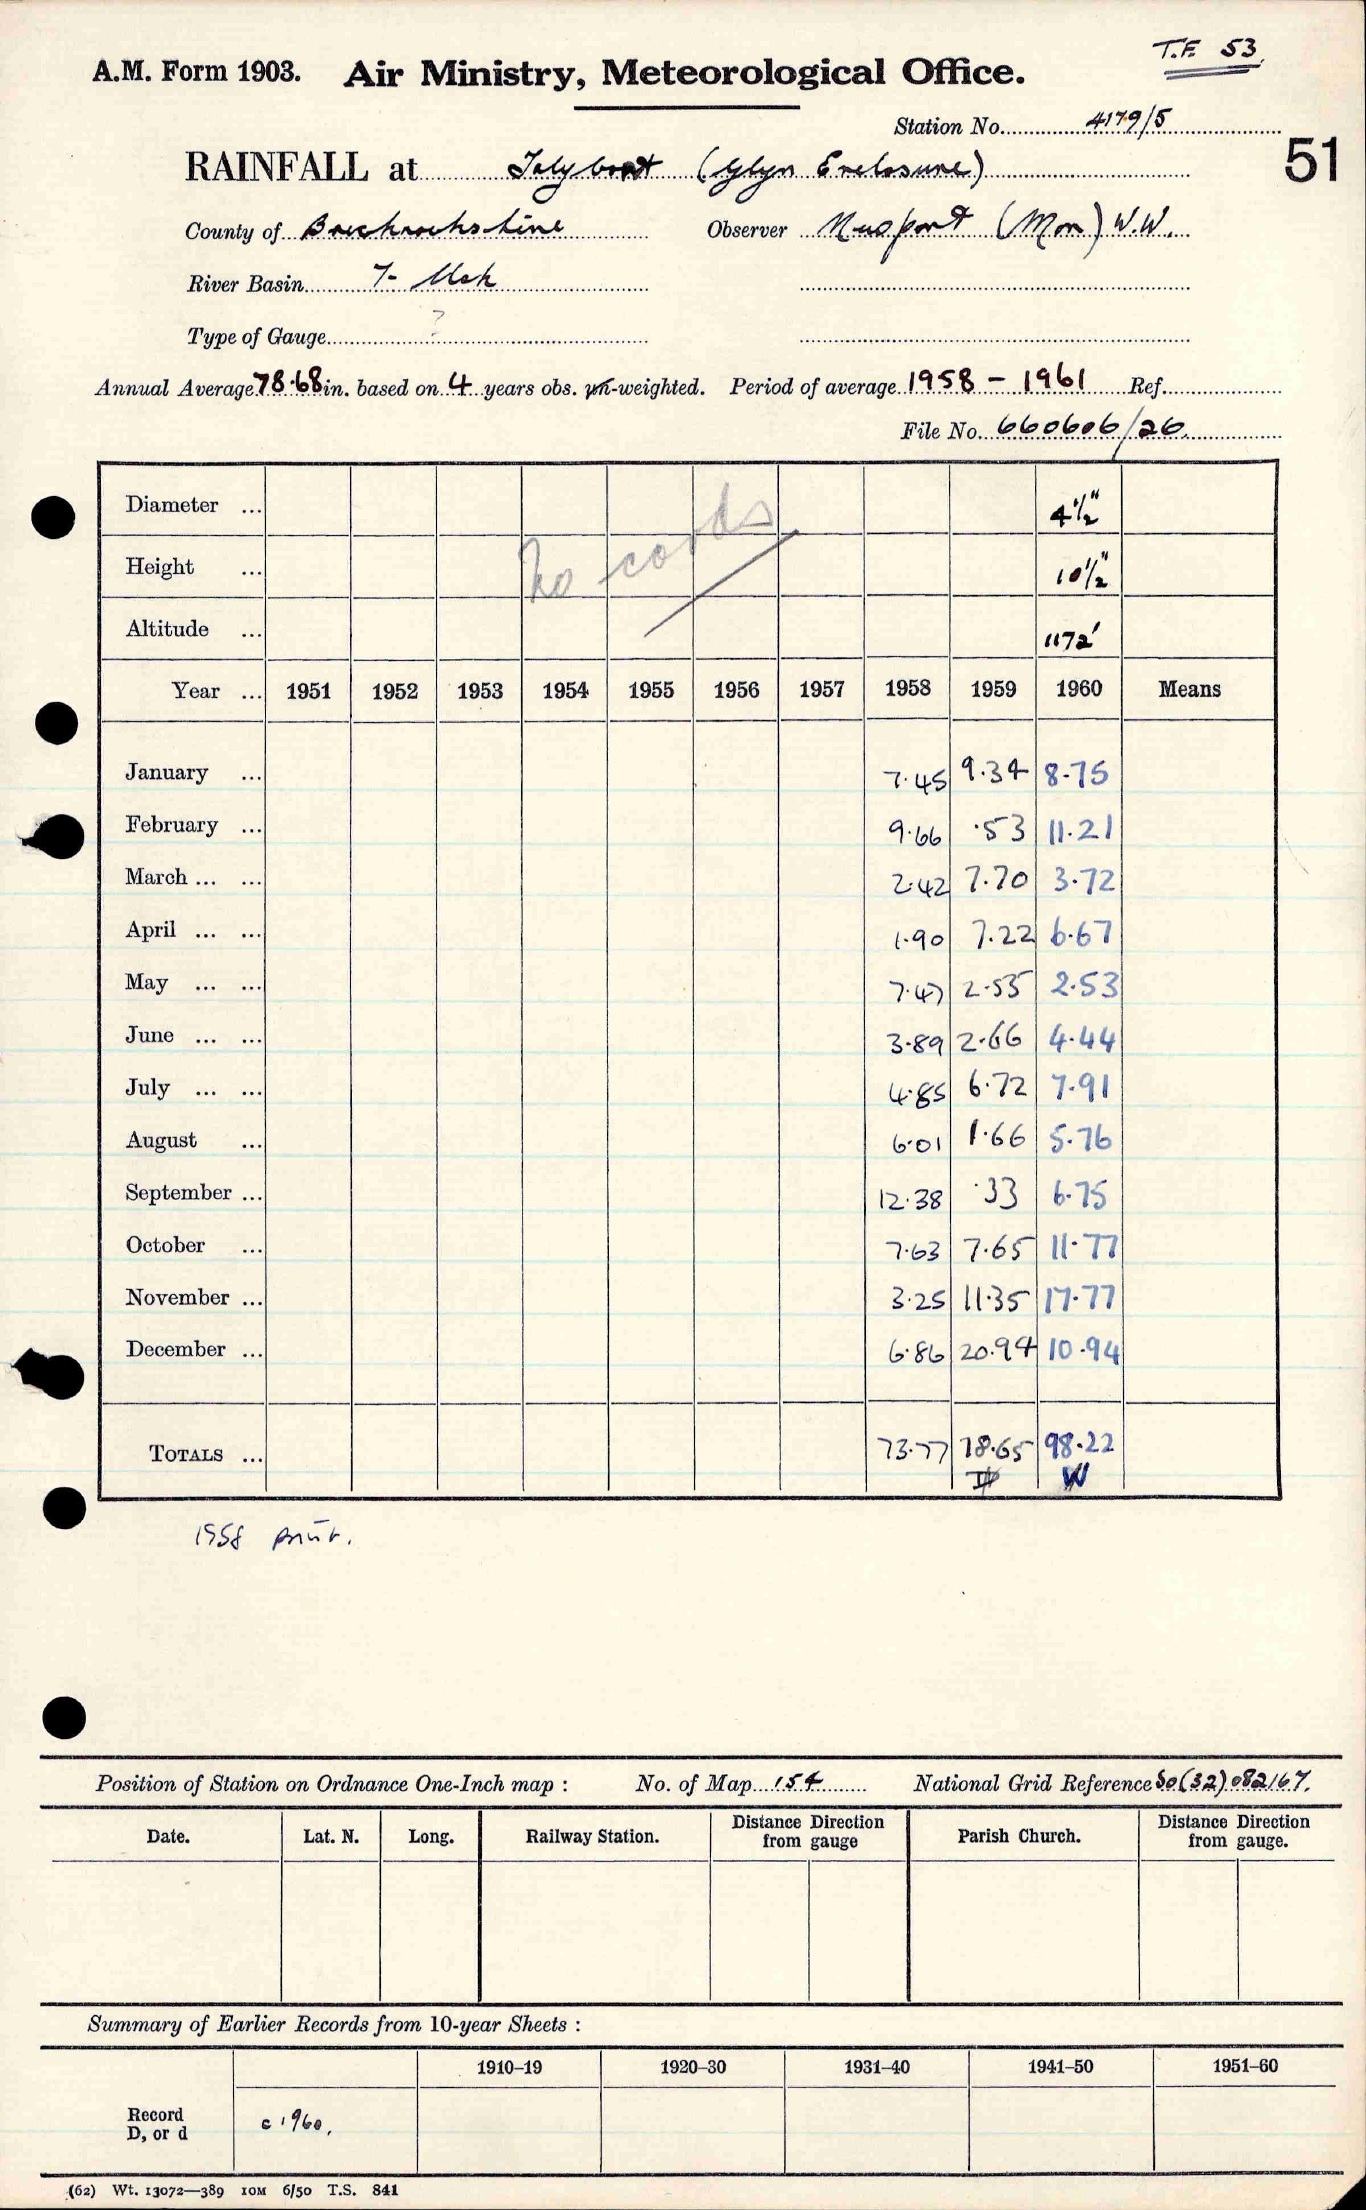 T.F. 53.
A.M. Form 1903. Air Ministry, Meteorological Office.
Station No. 4179/5
51
RAINFALL at Talybont (Glyn Enclosure)
County of Brecknockshire Observer Newport (Mon) W.W.
River Basin 7- Usk
Type of Gauge ?
Annual Average 78.68 in. based on 4 years obs. un-weighted. Period of average 1958 - 1961 Ref.
File No. 660606/26
Diameter ... 4½"
Height ... 10½"
Altitude ... 1172'
No cards
Year ... 1951 1952 1953 1954 1955 1956 1957 1958 1959 1960 Means
January ... 7.45 9.34 8.75
February ... 9.66 .53 11.21
March ... ... 2.42 7.70 3.72
April ... ... 1.90 7.22 6.67
May ... ... 7.47 2.55 2.53
June ... ... 3.89 2.66 4.44
July ... ... 4.85 6.72 7.91
August ... 6.01 1.66 5.76
September ... 12.38 .33 6.75
October ... 7.63 7.65 11.77
November ... 3.25 11.35 17.77
December ... 6.86 20.94 10.94
TOTALS ... 73.77 78.65 98.22
W
1958 print.
Position of Station on Ordnance One-Inch map : No. of Map 154 National Grid Reference SO(32)082167.
Date. Lat. N. Long. Railway Station. Distance Direction from gauge Parish Church. Distance Direction from gauge.
Summary of Earlier Records from 10-year Sheets :
1910–19 1920–30 1931–40 1941–50 1951–60
Record
D, or d
c 1960.
(62) Wt. 13072—389 10M 6/50 T.S. 841